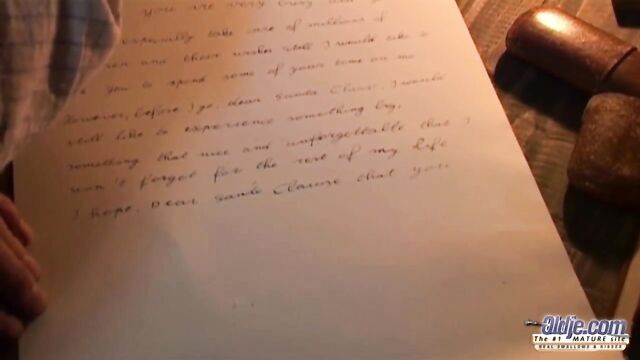 you are very busy and
especially take care of millions of
and their wishes still I would like t
you to spend some of your time on me
However, before I go, dear Santa Clause, I would
still like to experience something big,
something that nice and unforgettable that I
won't forget for the rest of my life
I hope, Dear Santa Clause that you
Oldje.com
The #1 MATURE site
REAL SWALLOWS & KISSES